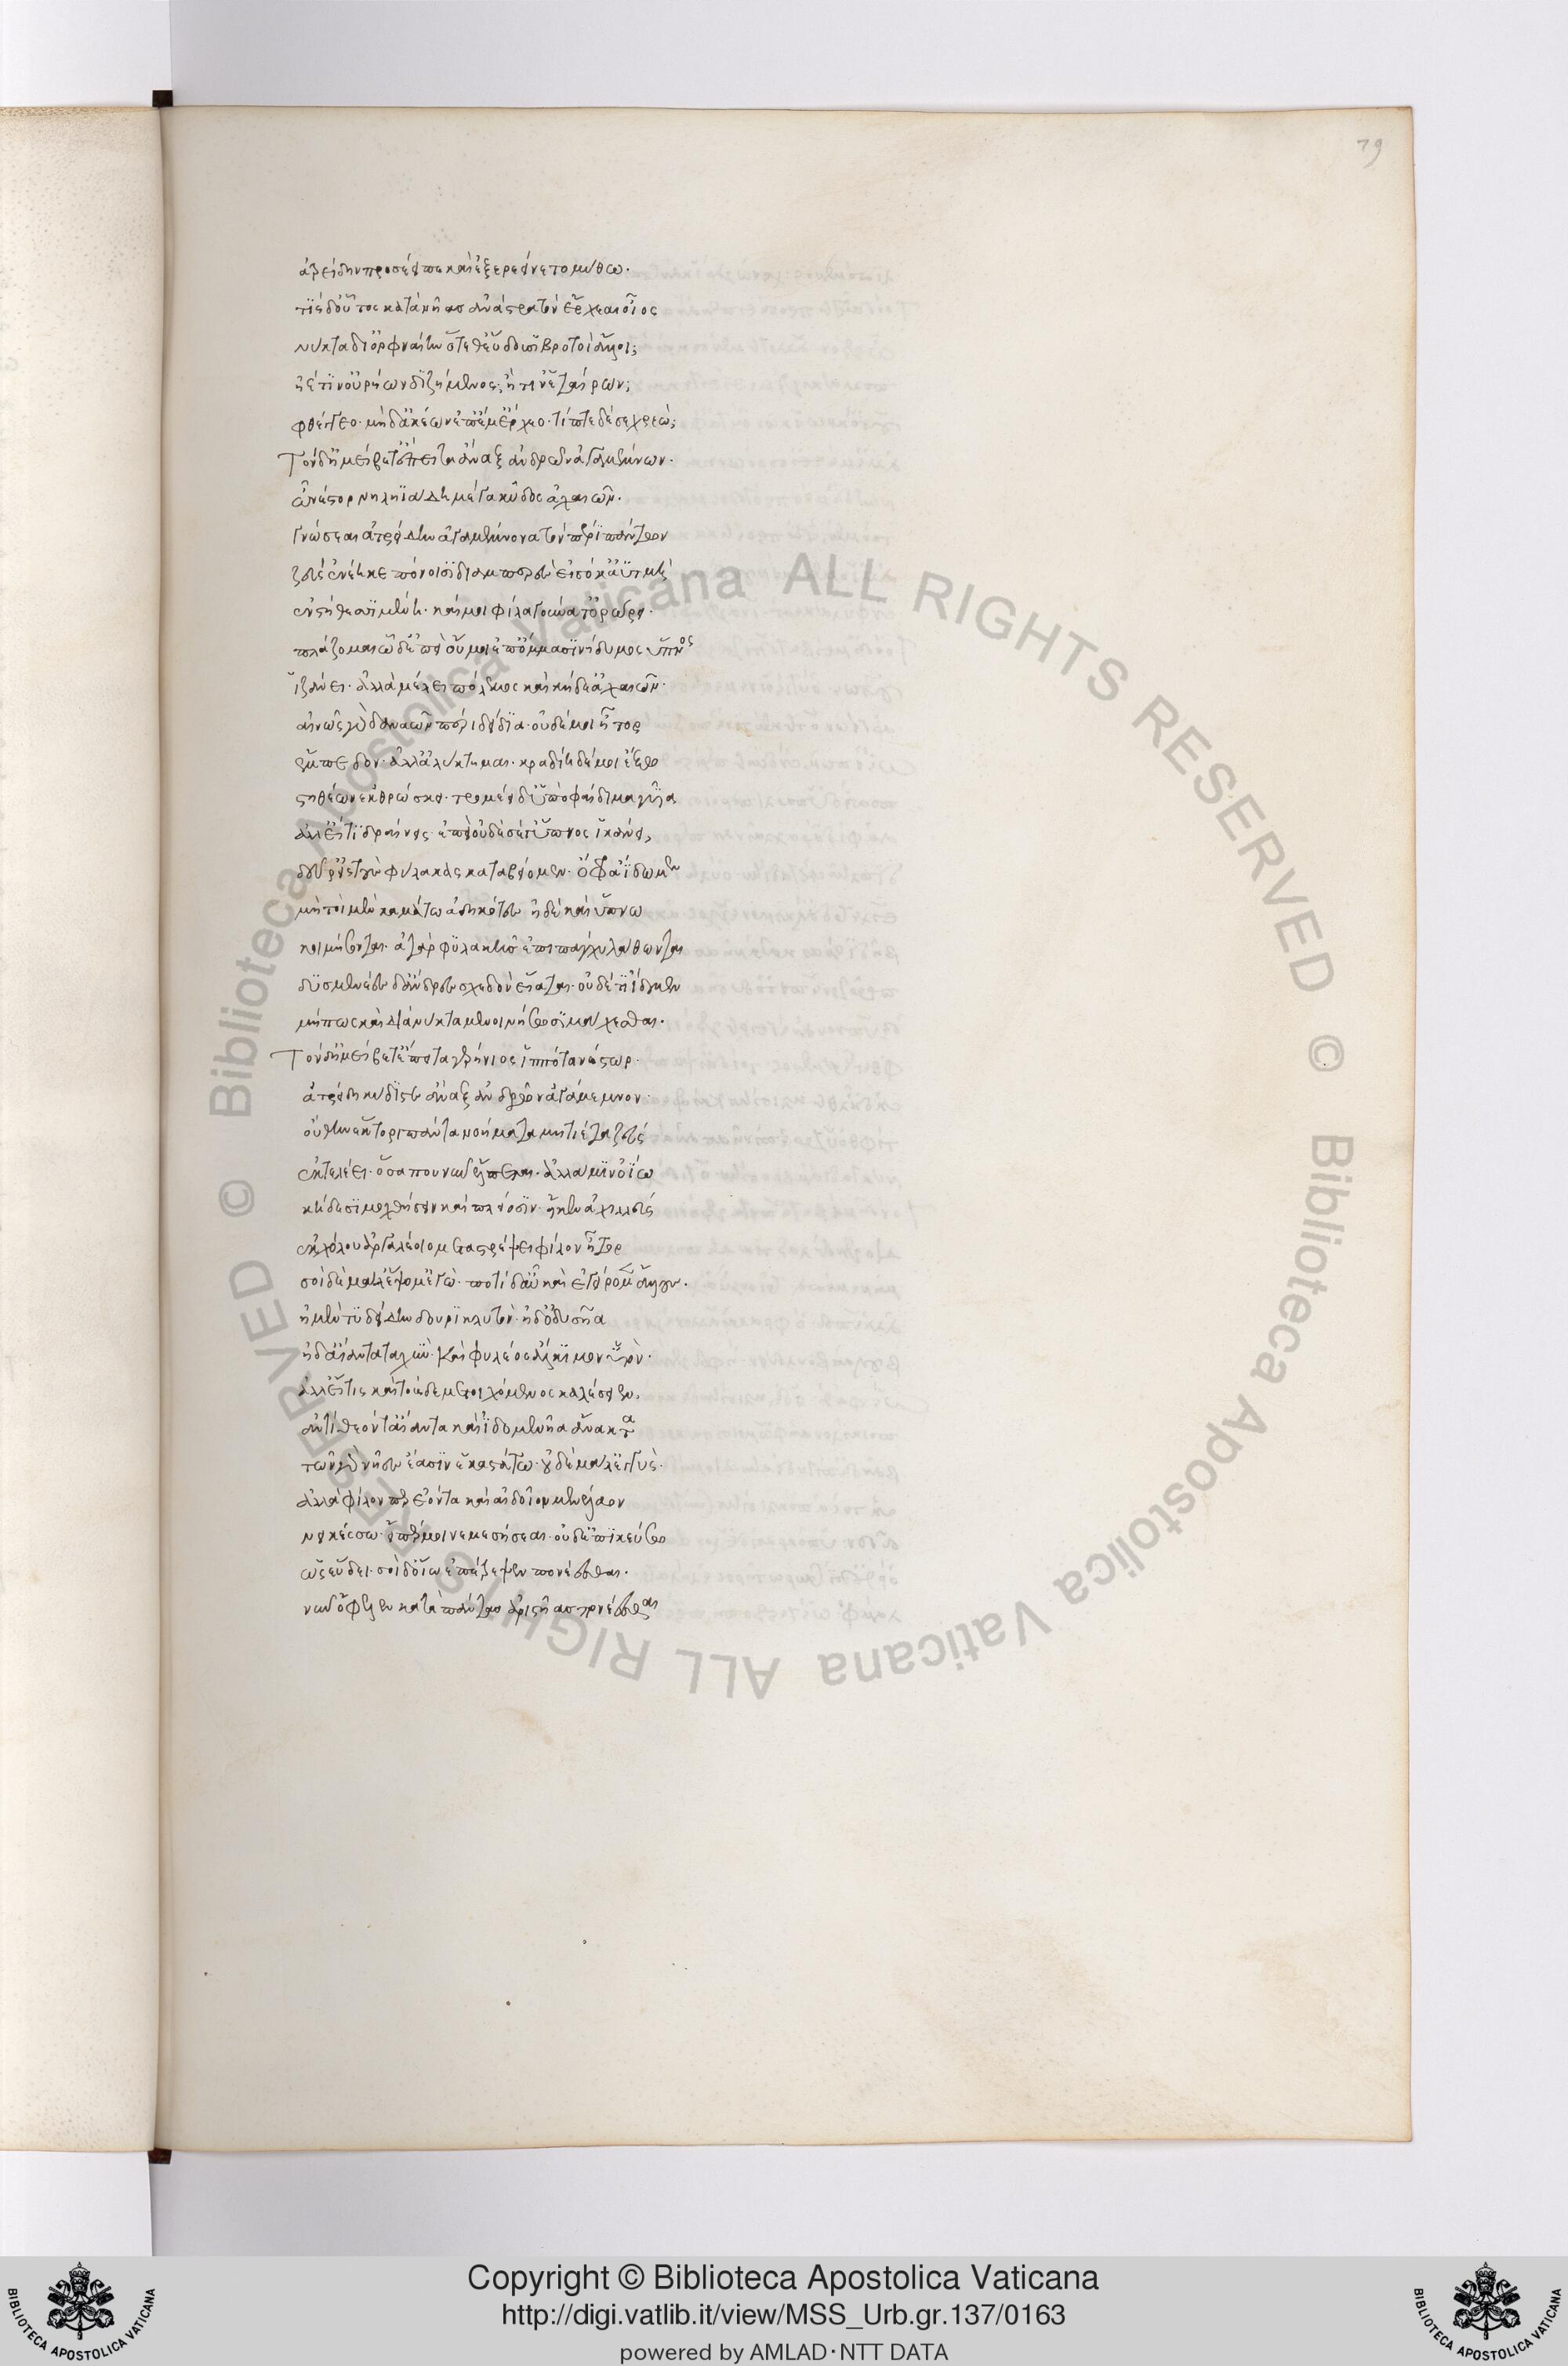 79
ἀτρείδην προσέειπε καὶ ἐξερεείνετο μύθω·
τίς δ' οὗτος κατὰ νῆας ἀνὰ στρατὸν ἔρχεαι οἶος
νύκτα δι' ὀρφναίην ὅτε θ' εὕδουσι βροτοὶ ἄλλοι;
ἠέ τιν' οὐρήων διζήμενος; ἤ τιν' ἑταίρων;
φθέγγεο· μηδ' ἀκέων ἐπ' ἔμ' ἔρχεο· τίπτε δέ σε χρεώ;
Τὸν δ' ἠμείβετ' ἔπειτα ἄναξ ἀνδρῶν ἀγαμέμνων·
ὦ νέστορ νηληϊάδη μέγα κῦδος ἀχαιῶν·
γνώσεαι ἀτρείδην ἀγαμέμνονα τὸν περὶ πάντων
ζεὺς ἐνέηκε πόνοισι διαμπερὲς εἰσόκ' ἀϋτμὴ
ἐν στήθεσσι μένη· καί μοι φίλα γούνατ' ὀρώρει·
πλάζομαι ὧδ' ἐπεὶ οὔ μοι ἐπ' ὄμμασι νήδυμος ὕπνος
ἱζάνει· ἀλλὰ μέλει πόλεμος καὶ κήδε' ἀχαιῶν·
αἰνῶς γὰρ δαναῶν περιδείδια· οὐδέ μοι ἦτορ
ἔμπεδον· ἀλλ' ἀλύκτημαι· κραδίη δέ μοι ἔξω
στηθέων ἐκθρώσκει· τρομέει δ' ὑπὸ φαίδιμα γυῖα
ἀλλ' εἴ τι δραίνεις· ἐπεὶ οὐδὲ σέ γ' ὕπνος ἱκάνει,
δεῦρ' ἐς τοὺς φύλακας καταβείομεν· ὄφρα ἴδωμεν
μὴ τοὶ μὲν καμάτω ἀδηκότες ἠδὲ καὶ ὕπνω
κοιμήσωνται· ἀτὰρ φυλακῆς ἐπιπάγχυ λάθωνται
δυσμενέες δ' ἄνδρες σχεδὸν εἵαται· οὐδέ τι ἴδμεν
μή πως καὶ διὰ νύκτα μενοινήσωσι μάχεσθαι·
Τὸν δ' ἠμείβετ' ἔπειτα γερήνιος ἱππότα νέστωρ·
ἀτρείδη κύδιστε ἄναξ ἀνδρῶν ἀγάμεμνον·
οὔ θην ἕκτορι πάντα νοήματα μητίετα ζεὺς
ἐκτελέει· ὅσα που νῦν ἔλπεται· ἀλλά μιν οἴω
κήδεσι μοχθήσειν καὶ πλείοσιν· ἤ κεν ἀχιλλεὺς
ἐκ χόλου ἀργαλέοιο μεταστρέψει φίλον ἦτορ
σοὶ δὲ μάλ' ἕψομ' ἐγώ· ποτὶ δ' αὖ καὶ ἐγείρομεν ἄλλους·
ἠμὲν τυδείδην δουρὶ κλυτὸν· ἠδ' ὀδυσῆα
ἠδ' αἴαντα ταχὺν· καὶ φυλέος ἄλκιμον υἱόν·
ἀλλ' εἴ τις καὶ τούσδε μετοιχόμενος καλέσειεν,
ἀντίθεόν τ' αἴαντα καὶ ἰδομενῆα ἄνακτα
τῶν γὰρ νῆες ἔασιν ἑκαστάτω· οὐδὲ μάλ' ἐγγύς·
ἀλλὰ φίλον περ ἐόντα καὶ αἰδοῖον μενέλαον
νεικέσσω· εἴ πέρ μοι νεμεσήσεαι· οὐδ' ἐπικεύσω
ὡς εὕδει· σοὶ δ' οἴω ἐπέτρεψεν πονέεσθαι·
νῦν ὄφελεν κατὰ πάντας ἀριστῆας πονέεσθαι
Copyright © Biblioteca Apostolica Vaticana
http://digi.vatlib.it/view/MSS_Urb.gr.137/0163
powered by AMLAD·NTT DATA